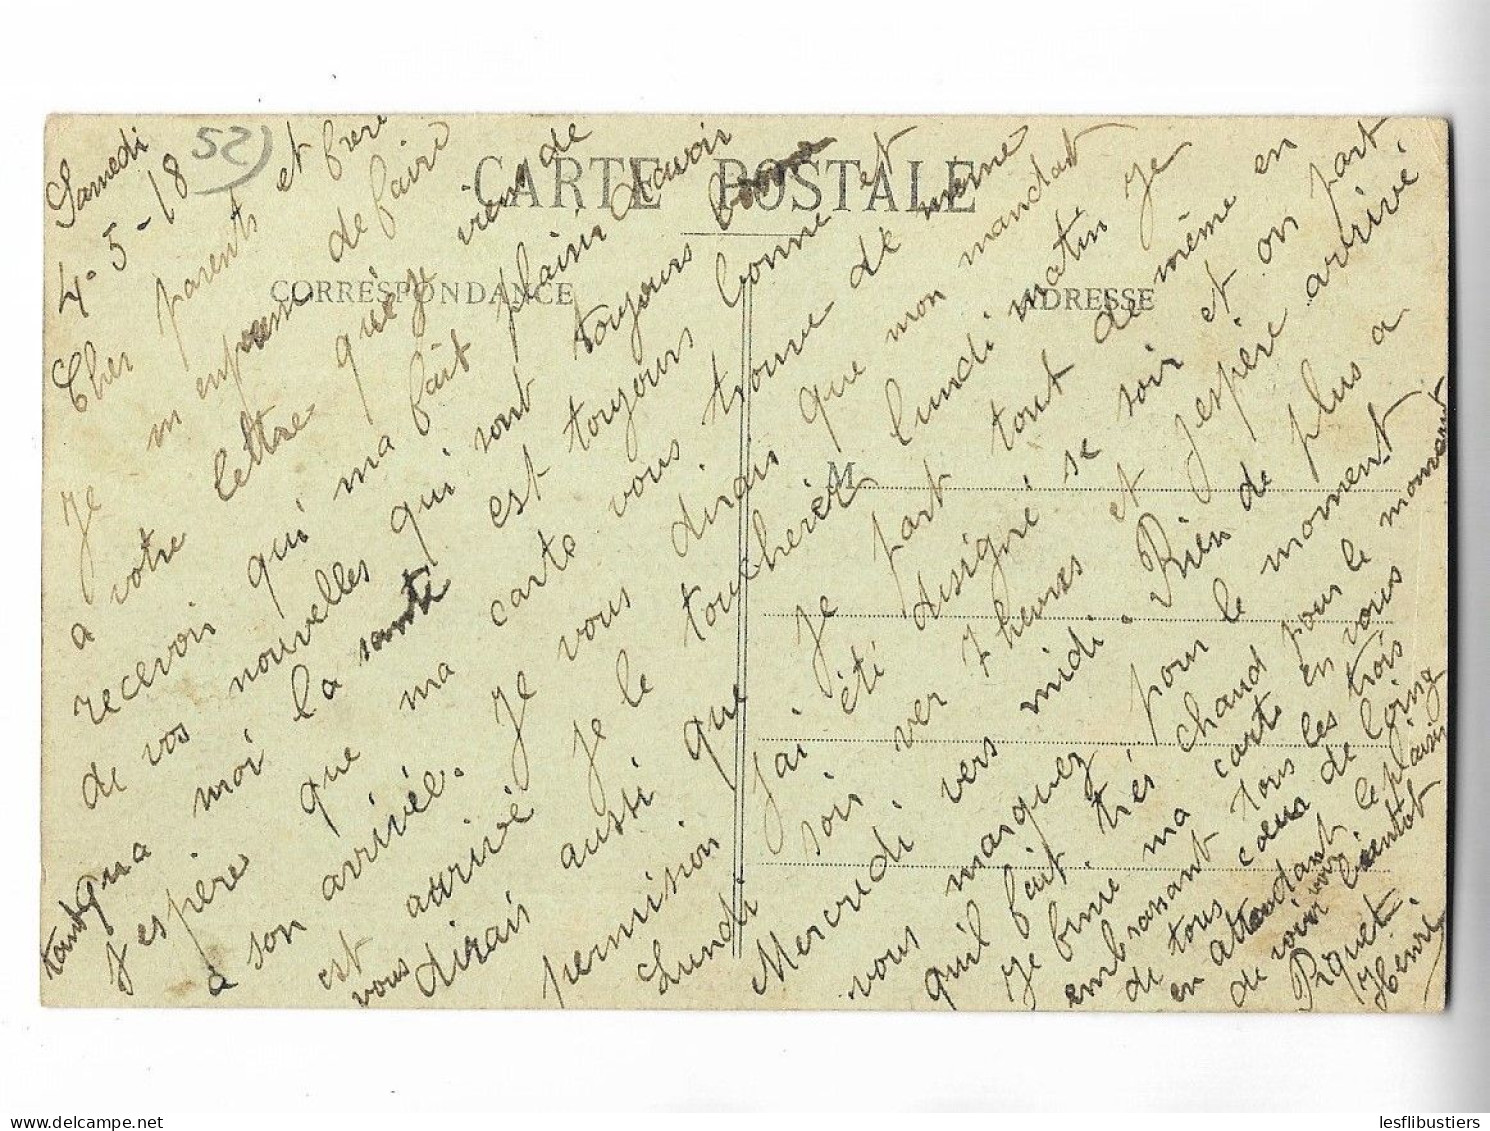 Samedi
4-5-18
52)
CARTE POSTALE
CORRESPONDANCE
ADRESSE
M
Cher parents et frère
Je m'enpresse de faire
a votre lettre que je vien de
recevoir qui ma fait plaisir davoir
de vos nouvelles qui sont toujours bonne
tant qua moi la santé est toujours bonne et
J espère que ma carte vous trouve de meme
a son arrivée. Je vous dirais que mon mandat
est arrivé je le toucherer lundi matin Je
vous dirais aussi que je part tout de même en
permission jai été désigné se soir et on part
Lundi soir ver 7 heures et jespère arrivé
Mercredi vers midi. Rien de plus a
vous marquez pour le moment
quil fait très chaud pour le moment
Je finie ma carte en vous
embrassant tous les trois
de tous coeur de loing
en attendant le plaisir
de voir voir bientot
Piquet
Henri